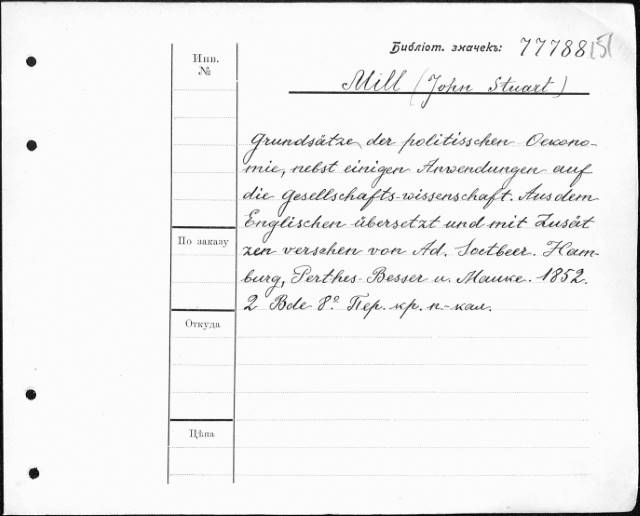 Библіот. значекъ: 77788(5)
Инв.
№
Mill (John Stuart)
Grundsätze der politisschen Oekono-
mie, nebst einigen Anwendungen auf
die Gesellschafts-wissenschaft. Aus dem
Englischen übersetzt und mit Zusät
zen versehen von Ad. Soetbeer. Ham-
burg, Perthes-Besser u. Mauke. 1852.
2 Bde 8º. Пер. кр. п.-кал.
По заказу
Откуда
Цѣна